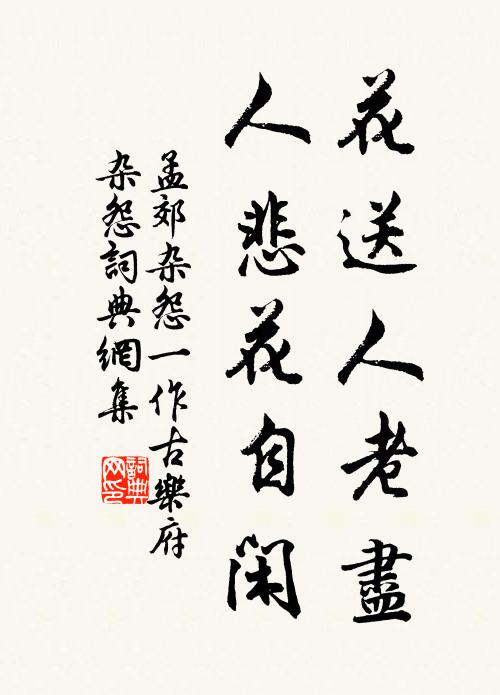 花送人老盡
人悲花自閑
孟郊杂怨一作古樂府
杂怨詞典網集
詞典网印